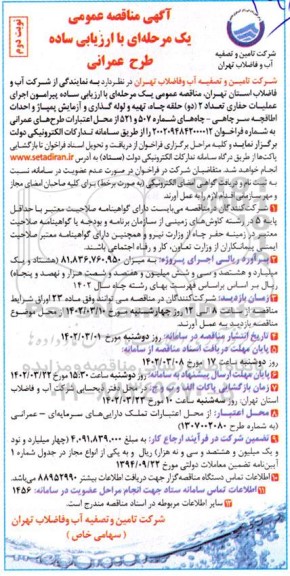 نوبت دوم
آگهی مناقصه عمومی
یک مرحله‌ای با ارزیابی ساده
طرح عمرانی
شرکت تامین و تصفیه
آب و فاضلاب تهران
شرکت تامین و تصفیه آب وفاضلاب تهران در نظردارد به نمایندگی از شرکت آب و
فاضلاب استان تهران، مناقصه عمومی یک مرحله‌ای با ارزیابی ساده پیرامون اجرای
عملیات حفاری تعداد ۲ (دو) حلقه چاه، تهیه و لوله گذاری و آزمایش پمپاژ و احداث
اطاقچه سر چاهی – چاه‌های شماره ۵۰۷ و ۵۳۱ از محل اعتبارات طرح‌های عمرانی
به شماره فراخوان ۲۰۰۲۰۹۴۸۴۲۰۰۰۰۱۲ را از طریق سامانه تدارکات الکترونیکی دولت
برگزار نمایند و کلیه مراحل برگزاری فراخوان از دریافت و تحویل اسناد فراخوان تا بازگشایی
پاکت‌ها از طریق درگاه سامانه تدارکات الکترونیکی دولت (ستاد) به آدرس www.setadiran.ir
انجام خواهد شد. متقاضیان شرکت در فراخوان در صورت عدم عضویت در سامانه، نسبت
به ثبت نام و دریافت گواهی امضای الکترونیکی (به صورت برخط) برای کلیه صاحبان امضای مجاز
و مهر سازمانی اقدام لازم را به عمل آورند.
۱ شرکت کنندگان در مناقصه می‌بایست دارای گواهینامه صلاحیت معتبر با حداقل
پایه ۵ در رشته کاوش‌های زمینی از سازمان برنامه و بودجه یا گواهینامه صلاحیت
معتبر در زمینه حفر چاه از وزارت نیرو و همچنین دارای گواهینامه معتبر صلاحیت
ایمنی پیمانکاران از وزارت تعاون، کار و رفاه اجتماعی باشند.
۲ برآورد ریالی اجرای پروژه: به میزان ۸۱,۸۳۶,۷۶۰,۹۵۰ (هشتاد و یک
میلیارد و هشتصد و سی و شش میلیون و هفتصد و شصت هزار و نهصد و پنجاه)
ریال بر اساس فهرست بهای رشته چاه سال ۱۴۰۲
۳ زمان بازدید: شرکت‌کنندگان در مناقصه می توانند وفق ماده ۲۳ اوراق شرایط
مناقصه از ساعت ۸ الی ۱۲ روز چهارشنبه مورخ ۱۴۰۲/۰۳/۱۰ از محل موضوع
مناقصه بازدید به عمل آورند.
۴ تاریخ انتشار مناقصه در سامانه: روز دوشنبه مورخ ۱۴۰۲/۰۳/۰۱
۵ پایان مهلت دریافت اسناد مناقصه از سامانه:
روز دوشنبه ساعت ۱۷ مورخ ۱۴۰۲/۰۳/۰۸
۶ پایان مهلت ارسال پیشنهاد به سامانه: روز دوشنبه ساعت ۱۵:۳۰ مورخ ۱۴۰۲/۰۳/۲۲
۷ زمان بازگشایی پاکات الف، ب و ج: در محل دفتر قراردادهای شرکت آب و فاضلاب
استان تهران: روز سه‌شنبه ساعت ۱۰ مورخ ۱۴۰۲/۰۳/۲۳
۸ محل اعتبار: از محل اعتبارات تملک دارایی‌های سرمایه‌ای – عمرانی
(به شماره طرح ۱۳۰۷۰۰۳۰۸۰)
۹ تضمین شرکت در فرآیند ارجاع کار: به مبلغ ۴,۰۹۱,۸۳۹,۰۰۰ (چهار میلیارد و نود
و یک میلیون و هشتصد و سی و نه هزار) ریال و به یکی از انواع مجاز در جدول شماره ۱
آیین‌نامه تضمین معاملات دولتی مورخ ۱۳۹۴/۰۹/۲۲
۱۰ اطلاعات تماس دستگاه مناقصه‌گزار جهت دریافت اطلاعات بیشتر ۸۸۹۵۲۹۹۰ می‌باشد.
۱۱ اطلاعات تماس سامانه ستاد جهت انجام مراحل عضویت در سامانه: ۱۴۵۶
۱۲ سایر اطلاعات مربوطه در اسناد مناقصه مندرج است.
شرکت تامین و تصفیه آب وفاضلاب تهران
(سهامی خاص)